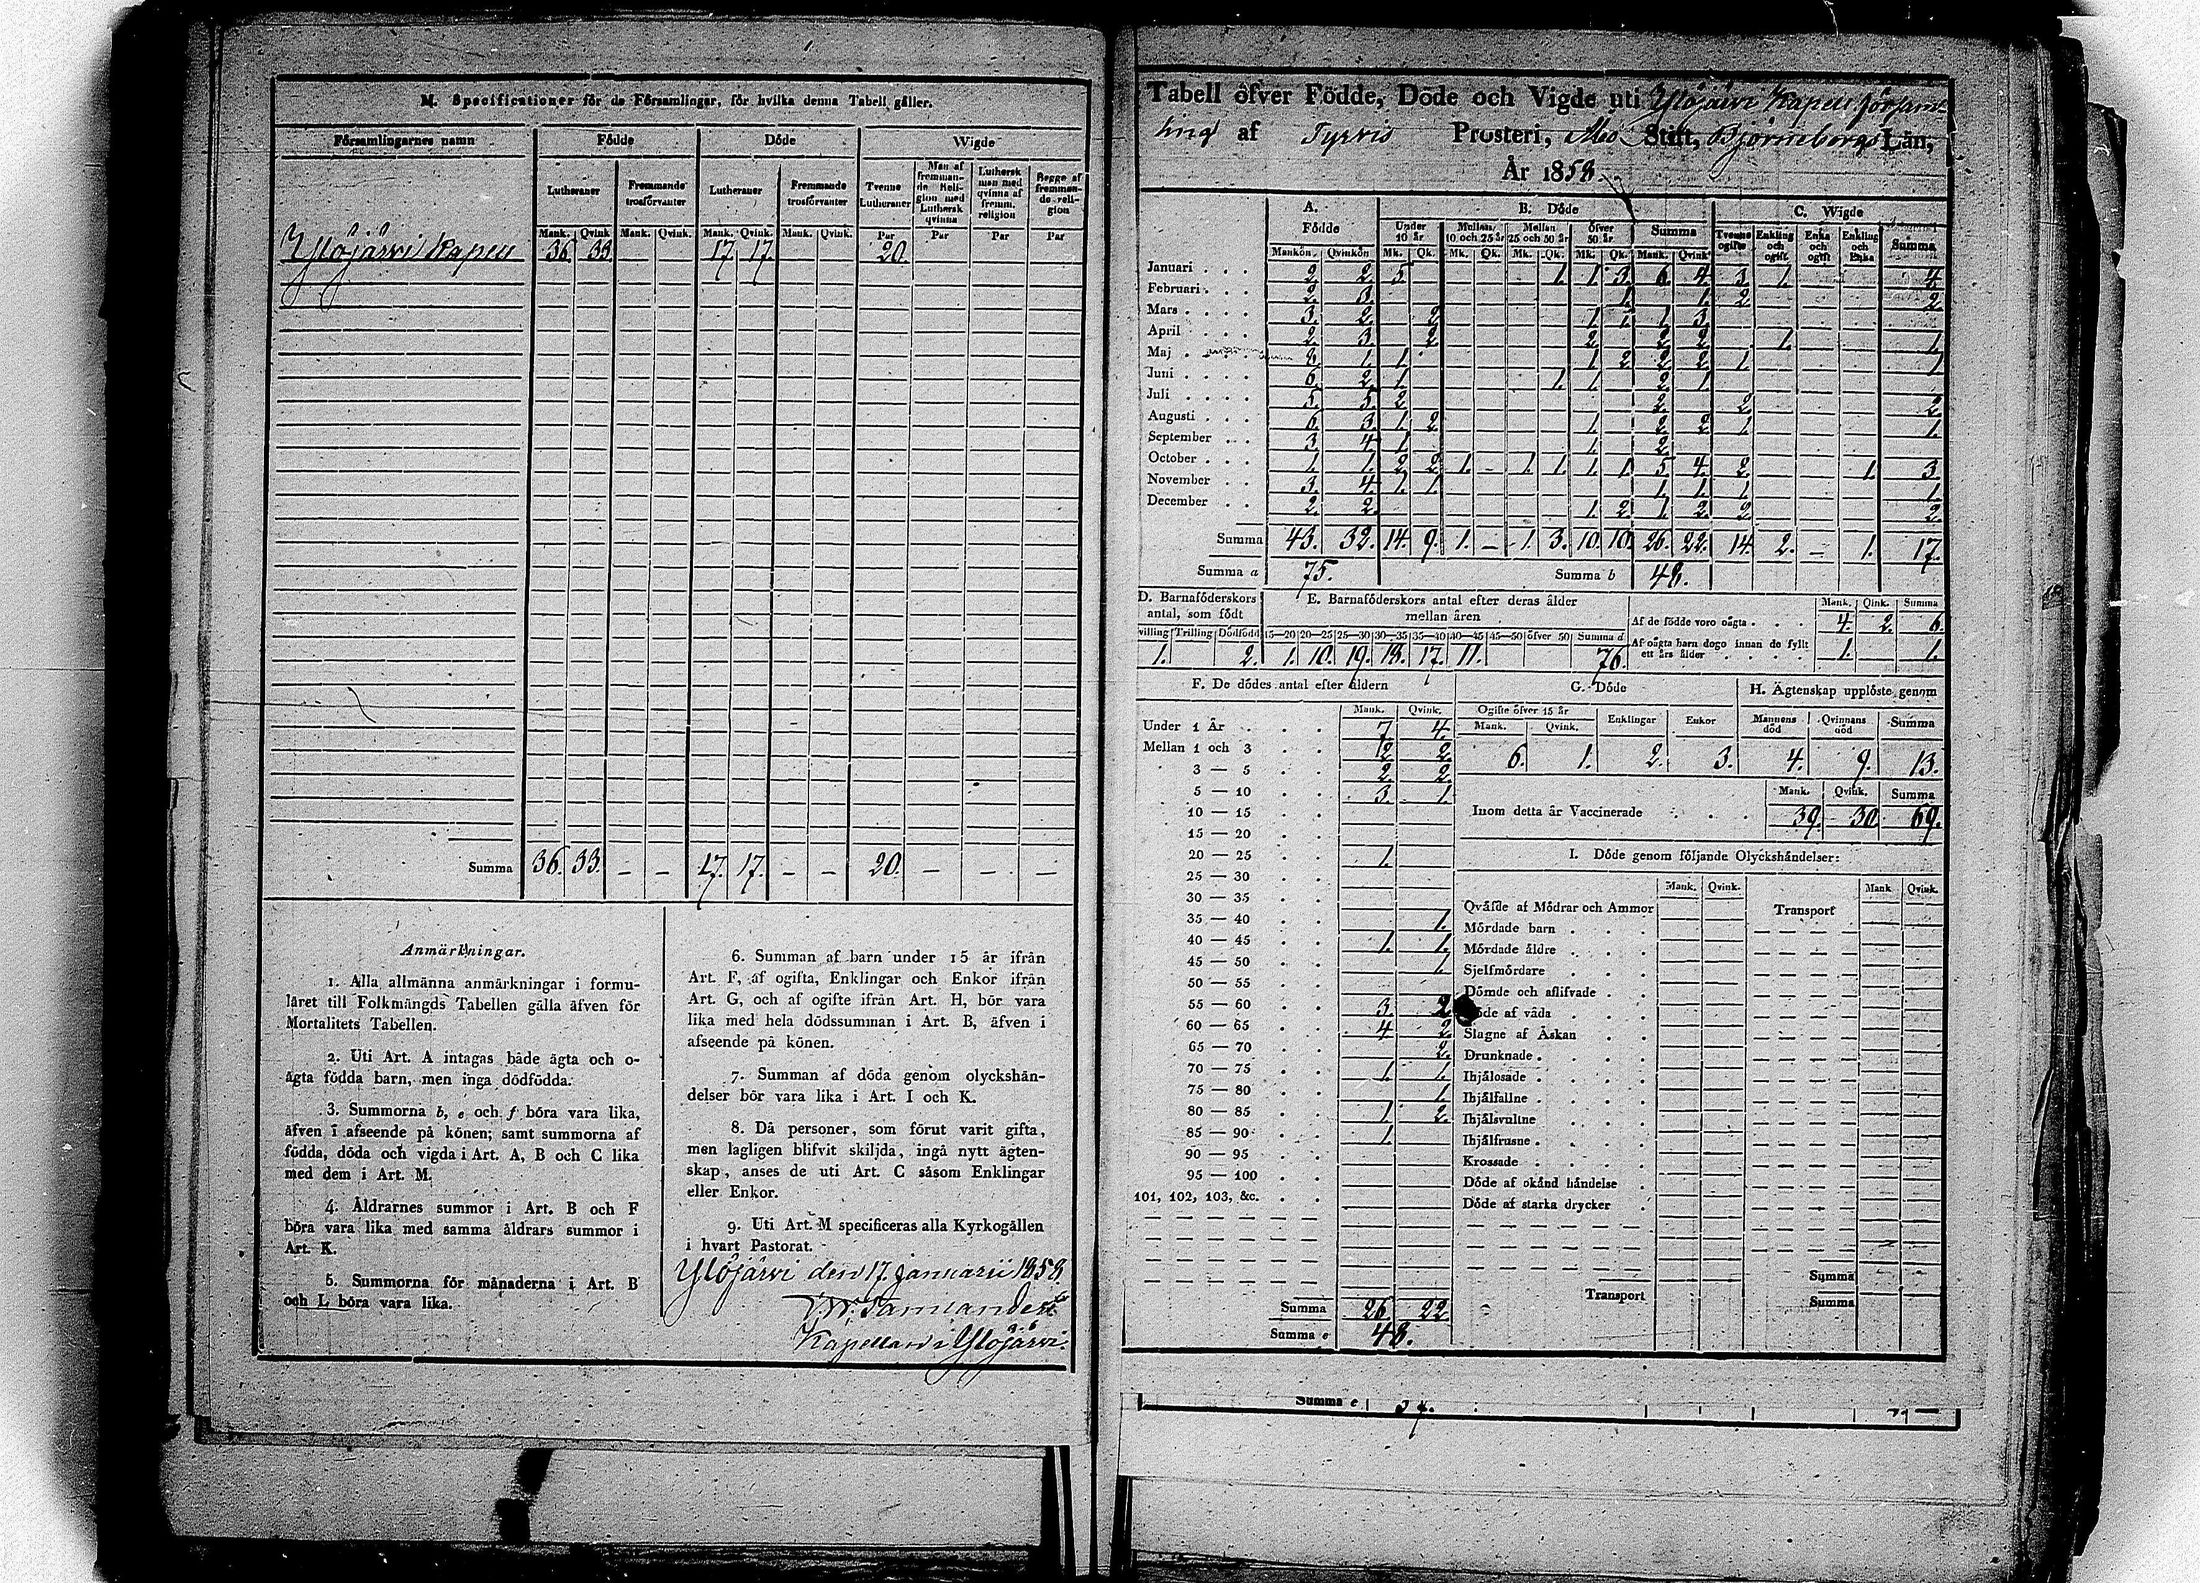 M. Specificationer för de Församlingar, för hvilka denna Tabell gäller.
Församlingarnes namn Födde Döde Wigde
Lutheraner Fremmande trosförvanter Lutheraner Fremmande trosförvanter Tvenne Lutheraner Man af fremmande Religion med Luthersk qvinna Luthersk man med qvinna af fremm. religion Begge af fremmande religion
Mank. Qvink Mank. Qvink. Mank. Qvink. Mank. Qvink. Par Par Par Par
Ylöjärvi Kapell 36. 33 17. 17. 20.
Summa 36. 33. — — 17. 17. — — 20. — — —
Anmärkningar.
1. Alla allmänna anmärkningar i formu-
läret till Folkmängds Tabellen gälla äfven för
Mortalitets Tabellen.
2. Uti Art. A intagas både ägta och o-
ägta födda barn, men inga dödfödda.
3. Summorna b, e och f böra vara lika,
äfven i afseende på könen; samt summorna af
födda, döda och vigda i Art. A, B och C lika
med dem i Art. M.
4. Åldrarnes summor i Art. B och F
böra vara lika med samma åldrars summor i
Art. K.
5. Summorna för månaderna i Art. B
och L böra vara lika.
6. Summan af barn under 15 år ifrån
Art. F, af ogifta, Enklingar och Enkor ifrån
Art. G, och af ogifte ifrån Art. H, bör vara
lika med hela dödssumman i Art. B, äfven i
afseende på könen.
7. Summan af döda genom olyckshän-
delser bör vara lika i Art. I och K.
8. Då personer, som förut varit gifta,
men lagligen blifvit skiljda, ingå nytt ägten-
skap, anses de uti Art. C såsom Enklingar
eller Enkor.
9. Uti Art. M specificeras alla Kyrkogällen
i hvart Pastorat.
Ylöjärvi den 17 Januarii 1858.
Kapellan i Ylöjärvi.
Tabell öfver Födde, Döde och Vigde uti Ylöjärvi Kapells församl-
ling af Tyrvis Prosteri, Åbo Stift, Björneborgs Län,
År 1858
A. Födde B. Döde C. Wigde
Under 10 år Mellan 10 och 25 år Mellan 25 och 50 år öfver 50 år Summa Tvenne ogifte Enkling och ogift Enka och ogift Enkling och Enka Summa
Mankön. Qvinkön Mk. Qk. Mk. Qk. Mk. Qk. Mk. Qk. Mank. Qvink
Januari 2. 2. 5. 1. 1. 3. 6. 4. 3. 1. 4.
Februari 2. 3. 1. 1. 2. 2.
Mars 3. 2. 2. 1. 1. 1. 3.
April 2. 3. 2. 2. 2. 2. 1. 1.
Maj 8. 1. 1. 1. 2. 2. 2. 1. 1
Juni 6. 2. 1. 1. 1. 2. 1.
Juli 5. 5. 2. 2. 2. 2.
Augusti 6. 3. 1. 2. 1. 2. 2. 1. 1.
September 3. 4. 1. 1. 2.
October 1. 1. 2. 2. 1. - 1. 1. 1. 1. 5. 4. 2. 1. 3.
November 3. 4. 1. 1. 1. 1. 1. 1.
December 2. 2. 1. 2. 1. 2. 2. 2.
Summa 43. 32. 14. 9. 1. — 1. 3. 10. 10. 26. 22. 14. 2. — 1. 17.
Summa a 75. Summa b 48.
D. Barnaföderskors antal, som födt
villing Trilling Dödfödd
1. 2.
E. Barnaföderskors antal efter deras ålder mellan åren
15—20 20—25 25—30 30—35 35—40 40—45 45—50 öfver 50 Summa d
1. 10. 19. 18. 17. 11. 76.
Mank. Qink. Summa
Af de födde voro oägta 4. 2. 6.
Af oägta barn dogo innan de fyllt ett års ålder 1. 1.
F. De dödes antal efter åldern
Mank. Qvink.
Under 1 År 7 4.
Mellan 1 och 3 2 2.
3 — 5 2. 2.
5 — 10 3. 1
10 — 15
15 — 20
20 — 25 1.
25 — 30
30 — 35
35 — 40 1.
40 — 45 1. 1.
45 — 50 1.
50 — 55
55 — 60 3. 2.
60 — 65 4. 2.
65 — 70 2.
70 — 75 1. 1.
75 — 80 1.
80 — 85 1. 2.
85 — 90 1.
90 — 95
95 — 100
101, 102, 103, &c.
Summa 26. 22.
Summa e 48.
G. Döde
Ogifte öfver 15 år Enklingar Enkor
Mank. Qvink.
6. 1. 2. 3.
H. Ägtenskap upplöste genom
Mannens död Qvinnans död Summa
4. 9. 13.
Mank. Qvink. Summa
Inom detta år Vaccinerade 39. 30 69.
I. Döde genom följande Olyckshändelser:
Mank. Qvink. Mank Qvink.
Qväfde af Mödrar och Ammor Transport
Mördade barn
Mördade äldre
Sjelfmördare
Dömde och aflifvade
Döde af våda
Slagne af Åskan
Drunknade
Ihjälosade
Ihjälfallne
Ihjälsvultne
Ihjälfrusne
Krossade
Döde af okänd händelse
Döde af starka drycker
Summa
Transport Summa
Summa e 34.